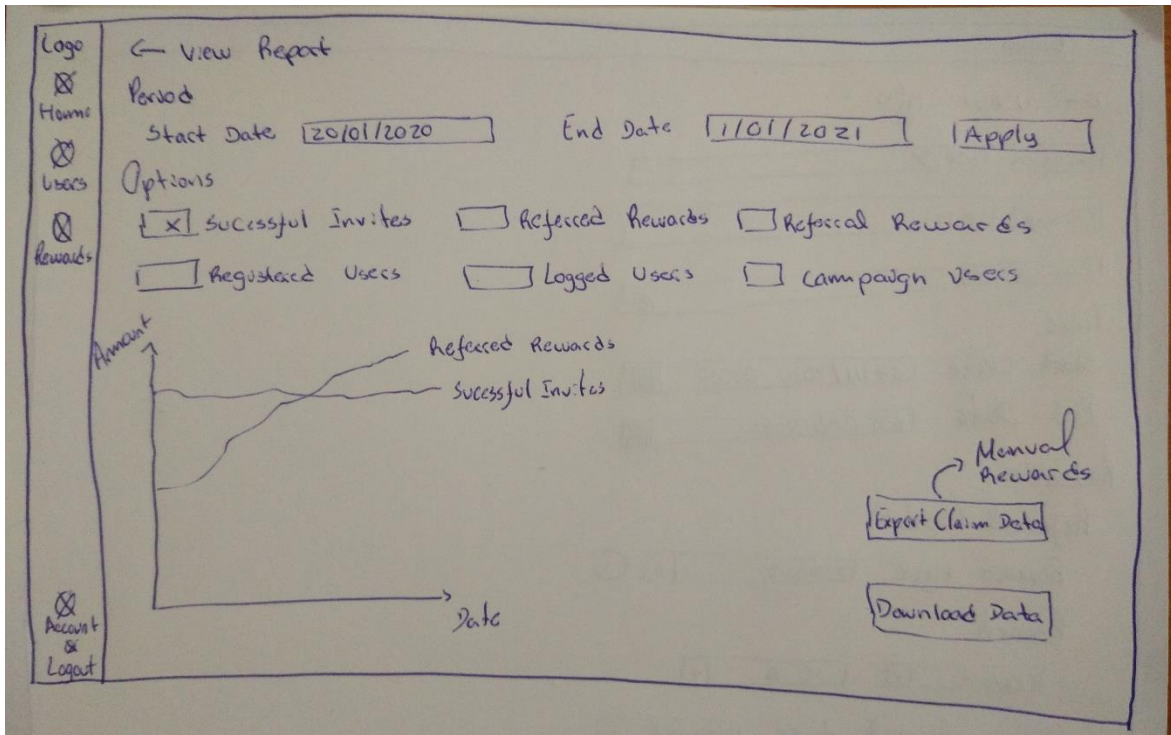 Logo
Home
Users
Rewards
Account
&
Logout
← View Report
Period
Start Date 20/01/2020 End Date 1/01/2021 Apply
Options
x Sucessful Invites Referred Rewards Referral Rewards
Registered Users Logged Users Campaign Users
Amount
Referred Rewards
Sucessful Invites
Date
Manual
Rewards
Export Claim Data
Download Data